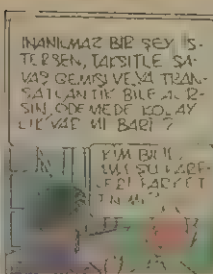 INANILMAZ BİR ŞEY İS-
TERSEN, TAKSİTLE SA-
VAŞ GEMİSİ VEYA TRAN-
SATLANTİK BİLE ALIR-
SIN. ÖDEMEDE KOLAY
LIK VAR MI BARİ?
KİM BİLİ
ŞU KARE-
LERİ FARKET